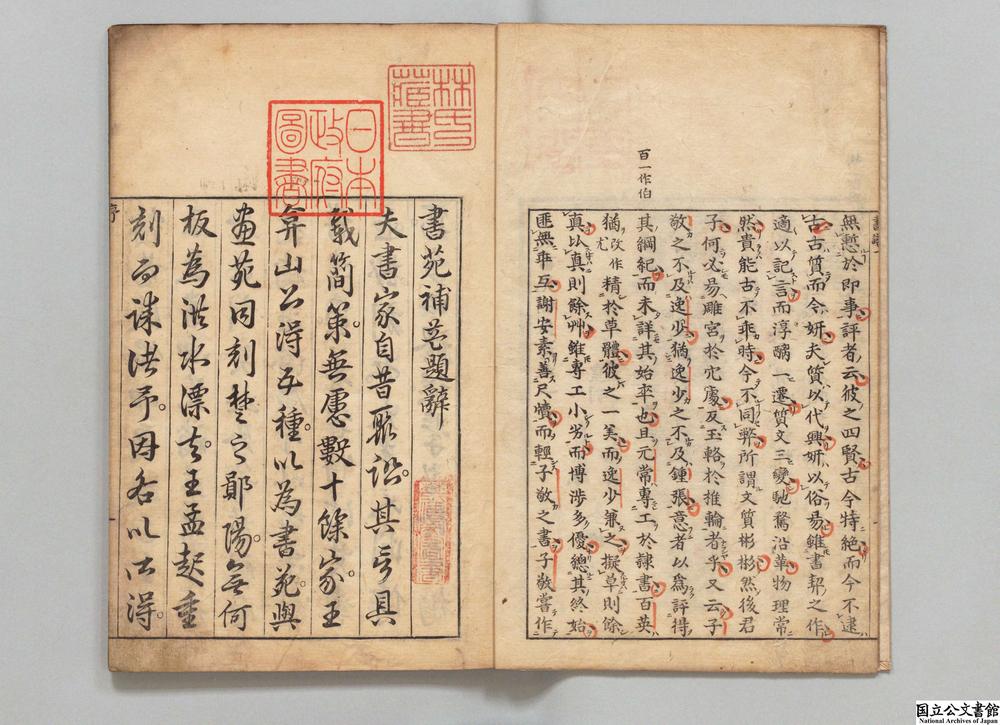 百一作伯
無慙於即事評者云彼之四賢古今特絶而今不逮
古古質而今妍夫質以代興妍以俗易雖書契之作
適以記言而淳醨一遷質文三變馳騖沿革物理常
然貴能古不乖時今不同弊所謂文質彬彬然後君
子何必易雕宮於穴處反玉輅於推輪者乎又云子
敬之不及逸少猶逸少之不及鍾張意者以為評得
其綱紀而未詳其始卒也且元常專工於隷書百英
猶改作尤精於草體彼之一美而逸少兼之擬草則餘
真以真則餘艸雖專工小劣而博涉多優總其終始
匪無乖互謝安素善尺牘而輕子敬之書子敬嘗作
林氏藏書
日本政府圖書
書苑補益題辭
夫書家自昔聚訟其言具
載簡策無慮數十餘家王
弇山公得五種以為書苑與
畫苑同刻楚之鄖陽無何
板為洪水漂去王孟起重
刻而謀諸予因各以所得
国立公文書館
National Archives of Japan